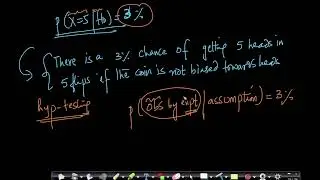 p(x=5|H0) = 3%
There is a 3% chance of getting 5 heads in
5 flips if the coin is not biased towards heads
hyp-testing
p(obs by expt | assumption) = 3%